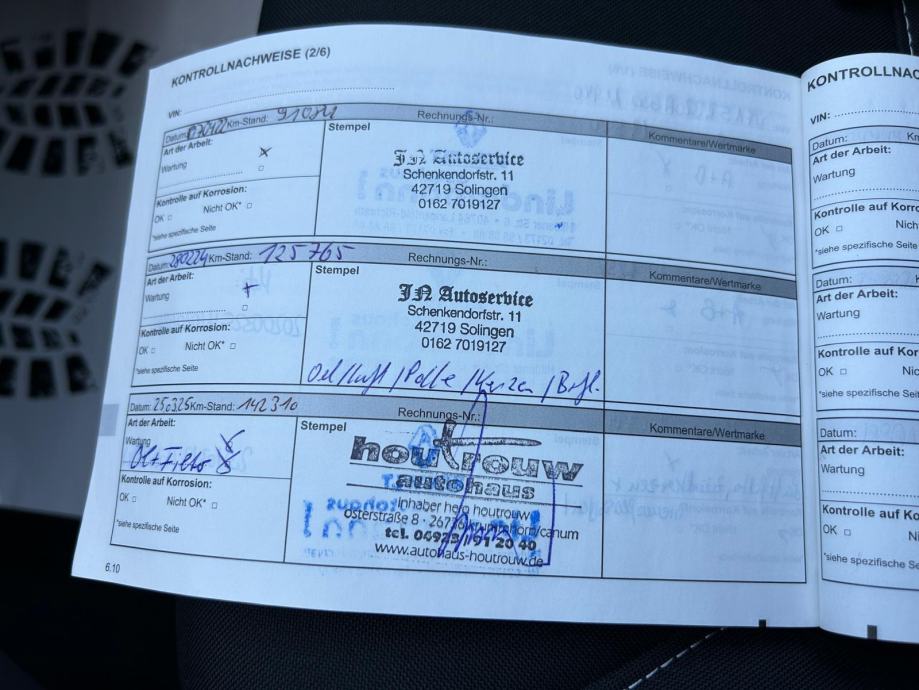 KONTROLLNACHWEISE (2/6)
VIN:
Datum: Km-Stand: 91081 Rechnungs-Nr.:
Art der Arbeit:
Wartung
Kontrolle auf Korrosion:
OK □ Nicht OK* □
*siehe spezifische Seite
Stempel
JN Autoservice
Schenkendorfstr. 11
42719 Solingen
0162 7019127
Kommentare/Wertmarke
Datum: 280224 Km-Stand: 125765 Rechnungs-Nr.:
Art der Arbeit:
Wartung
Kontrolle auf Korrosion:
OK □ Nicht OK* □
*siehe spezifische Seite
Stempel
JN Autoservice
Schenkendorfstr. 11
42719 Solingen
0162 7019127
Oel/Luft/Polle/Kerzen/Brfl.
Kommentare/Wertmarke
Datum: 250325 Km-Stand: 142310 Rechnungs-Nr.:
Art der Arbeit:
Wartung
Öl+Filter
Kontrolle auf Korrosion:
OK □ Nicht OK* □
*siehe spezifische Seite
Stempel
houtrouw
autohaus
inhaber hero houtrouw
osterstraße 8 · krummhörn/canum
tel. 04923 / 91 20 40
www.autohaus-houtrouw.de
Kommentare/Wertmarke
6.10
KONTROLLNAC
VIN:
Datum:
Art der Arbeit:
Wartung
Kontrolle auf Korro
OK □ Nich
*siehe spezifische Seite
Datum:
Art der Arbeit:
Wartung
Kontrolle auf Korro
OK □ Nic
*siehe spezifische Seite
Datum:
Art der Arbeit:
Wartung
Kontrolle auf Korro
OK □ Ni
*siehe spezifische Seit